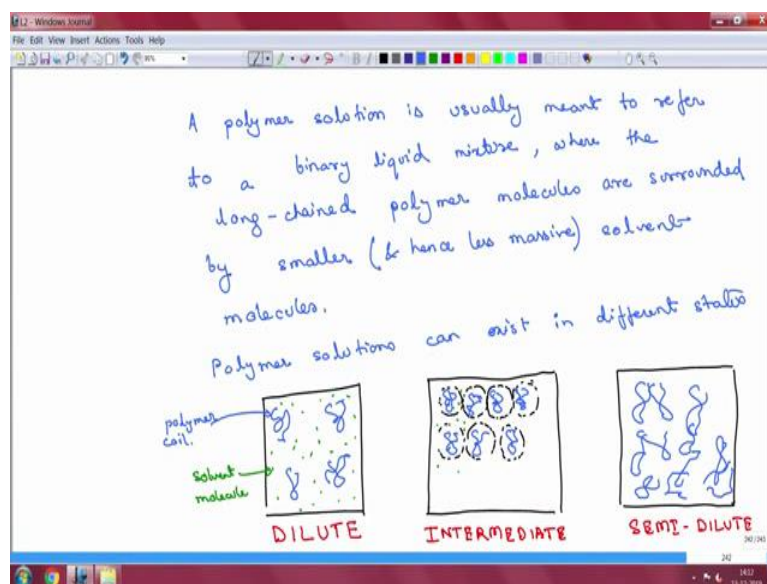 L2 - Windows Journal
File Edit View Insert Actions Tools Help
A polymer solution is usually meant to refer
to a binary liquid mixture, where the
long-chained polymer molecules are surrounded
by smaller (& hence less massive) solvent
molecules.
Polymer solutions can exist in different states
polymer
coil.
solvent
molecule
DILUTE
INTERMEDIATE
SEMI-DILUTE
242
14:12